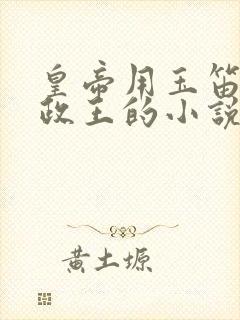 皇帝用玉笛
政王的小說
黄土塬